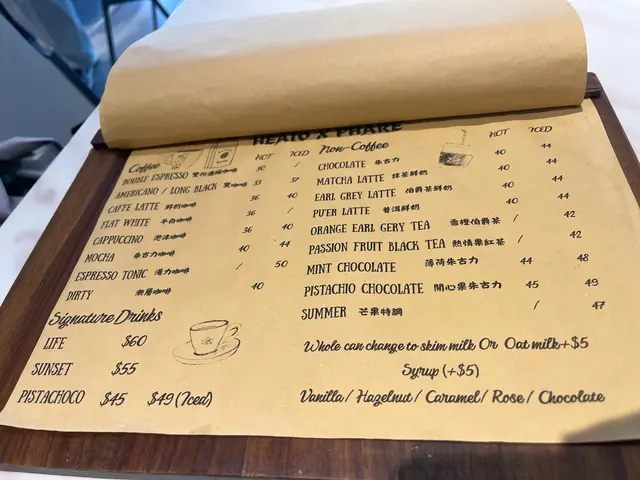 HEATO X PHARE
Coffee HOT ICED
DOUBLE ESPRESSO 雙份濃縮咖啡 30 /
AMERICANO / LONG BLACK 黑咖啡 33 37
CAFFE LATTE 鮮奶咖啡 36 40
FLAT WHITE 平白咖啡 36 /
CAPPUCCINO 泡沫咖啡 36 40
MOCHA 朱古力咖啡 40 44
ESPRESSO TONIC 湯力咖啡 / 50
DIRTY 漸層咖啡 40
Signature Drinks
LIFE $60
SUNSET $55
PISTACHOCO $45 $49 (Iced)
Non-Coffee HOT ICED
CHOCOLATE 朱古力 40 44
MATCHA LATTE 抹茶鮮奶 40 44
EARL GREY LATTE 伯爵茶鮮奶 40 44
PU'ER LATTE 普洱鮮奶 40 44
ORANGE EARL GERY TEA 香橙伯爵茶 / 42
PASSION FRUIT BLACK TEA 熱情果紅茶 / 42
MINT CHOCOLATE 薄荷朱古力 44 48
PISTACHIO CHOCOLATE 開心果朱古力 45 49
SUMMER 芒果特調 / 47
Whole can change to skim milk Or Oat milk+$5
Syrup (+$5)
Vanilla/ Hazelnut/ Caramel/ Rose/ Chocolate